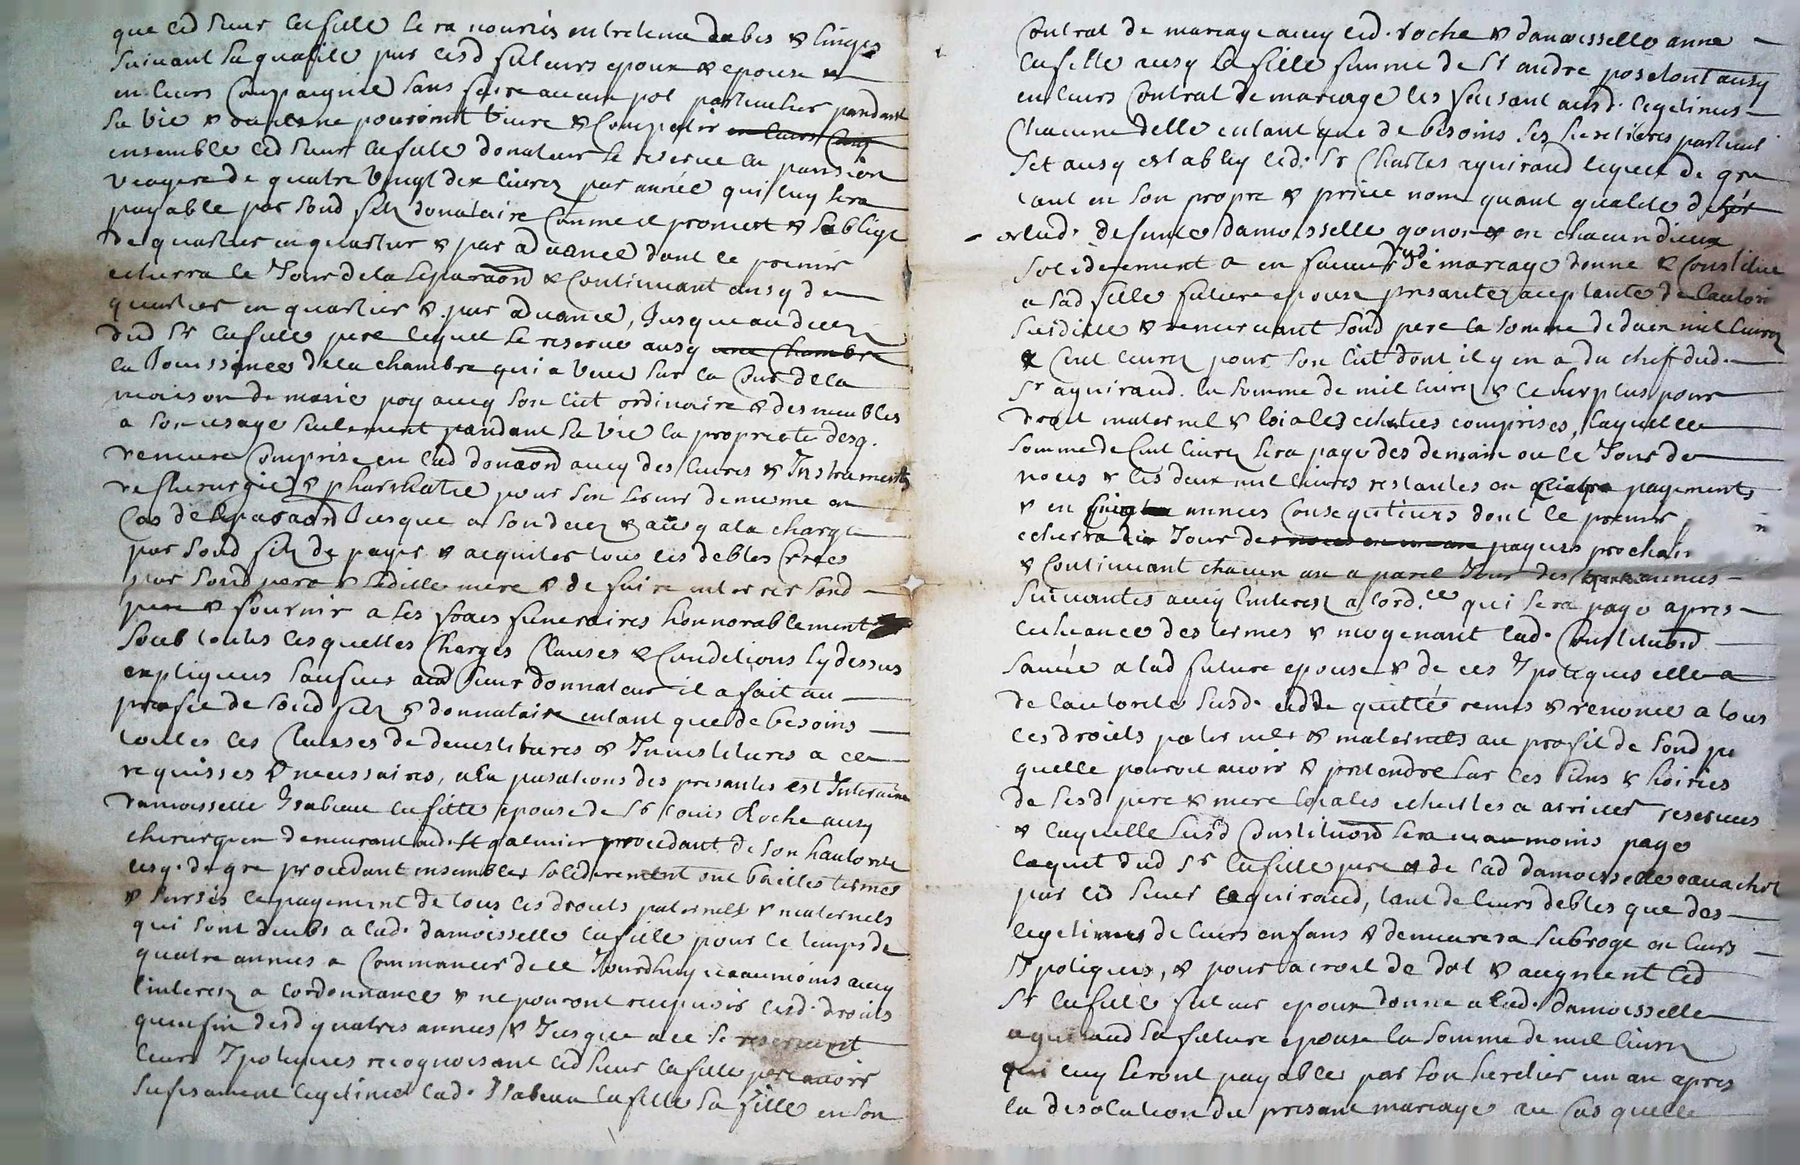 que led sieur lafitte sera nourris entretenu dabis & linges
suivant sa qualité par lesd futeurs epoux & epouse &
en leurs Compaignie sans faire aucun pot particulier pandant
sa vie & ou ils ne pouroint vivre & Compatir en leurs Comp
ensemble led sieur lafitte donateur se reserve la pantion
viagere de quatre vingt dix livres par année qui luy sera
payable par sond filz donataire Comme il promet & soblige
de quartier en quartier & par advance dont le premier
echerra le Jour de la separaõn & Continuant ausy de
quartier en quartier & par advance, Jusque au decez
dud Sr lafitte pere lequel se reserve ausy une Chambre
la Jouissance de la chambre qui a veue sur la Cour de la
maison de marie poy avecq son lict ordinaire & des meubles
a son usage seulement pandant sa vie la propriete desq.
demeure Comprise en lad donaõn avecq des livres & Instruments
de chirurgie & pharmatie pour son servir de meme en
Cas de separaõn Jusque a son decez & ausy a la charge
par sond filz de payer & acquiter tous les debtes Crees
par sond pere & saditte mere & de faire enterrer sond
pere & fournir a ses frais funeraires honnorablement
soub toutes lesquelles Charges Clauses & Conditions sy dessus
expliquees aud sieur donnateur il a fait au
profit de soud filz & donnataire entant que de besoins
toutes les Clauses de devestitures & Investitures a ce
requisses & necessaires, a la pasations des presantes est Intervenue
damoiselle Isabeau lafitte epouse de Sr Louis Roche ausy
chirurgien demeurant aud. St galmier procedant de son hautorite
lesq. de gre procedant ensembles soliderement ont bailles termes
& sursis le payement de tous les droits paternels & maternels
qui sont deubs a lad. damoisselle lafitte pour le temps de
quatre annees a Commancer de ce Jourdhuy neaumoins avecq
linterez a lordonnance & ne pouront recepvoir lesd. droits
quen fin desd quatres annees & Jusque a ce se reservent
leurs Ypoteques recognoisant led sieur lafitte pere avoir
sufisament legetimée lad. Isabeau lafitte sa fille en son
Contrat de mariage avecq led. roche & damoisselle anne
lafitte ausy sa fille femme de Sr andre poselont ausy
en leurs Contrat de mariage les faisant ausd. legetimes
Chacune delle entant que de besoins ses heretieres particul
Set ausy establly led. Sr Charles aquiraud lequel de gre
tant en son propre & prive nom quant qualite d her
de lad. defunte damoisselle gonon & en chacun dieux
soliderement a en faveur dud mariage donne & Constitue
a sad fille future epouse presante acceptante de lautori
susditte & remerciant sond pere la somme de deux mil livres
& Cent livres pour son lict dont il y en a du chef dud.
Sr aquiraud. la somme de mil livres & le surplus pour
droit maternel & loiales echutes comprises, laquelle
somme de Cent livres sera paye des demain ou le Jour de
noces & les deux mil livres restantes en quatre payements
& en annees Consequtives dont le premier
echerra du Jour de payeurs prochain
& Continuant chacun an a pareil Jour des annees
suivantes avecq linterez a lord.ce qui sera paye apres
lecheance des termes & moyenant lad. Constituõn
lad future epouse & de ces Ypoteques elle a
de lautorite susd. quitté remis & renoncé a tous
les droits paternels & maternels au profit de sond pe
quelle pouroit avoir & pretendre sur les biens & hoiries
de sesd pere & mere loiales echuttes a arriver reservees
& laquelle susd Constituõn sera neaumoins paye
lacquit dud Sr lafitte pere & de lad damoisselle
par led sieur aquiraud, tant de leurs debtes que des
legetimes de leurs enfans & demeurera subroge en leurs
Ypoteques, & pour acroit de dot & augment led
Sr lafitte futeur epoux donne a lad. damoisselle
aquiraud sa future epouse la somme de mil livres
qui luy seront payable par son heretier un an apres
la desolution du presant mariage au Cas quelle